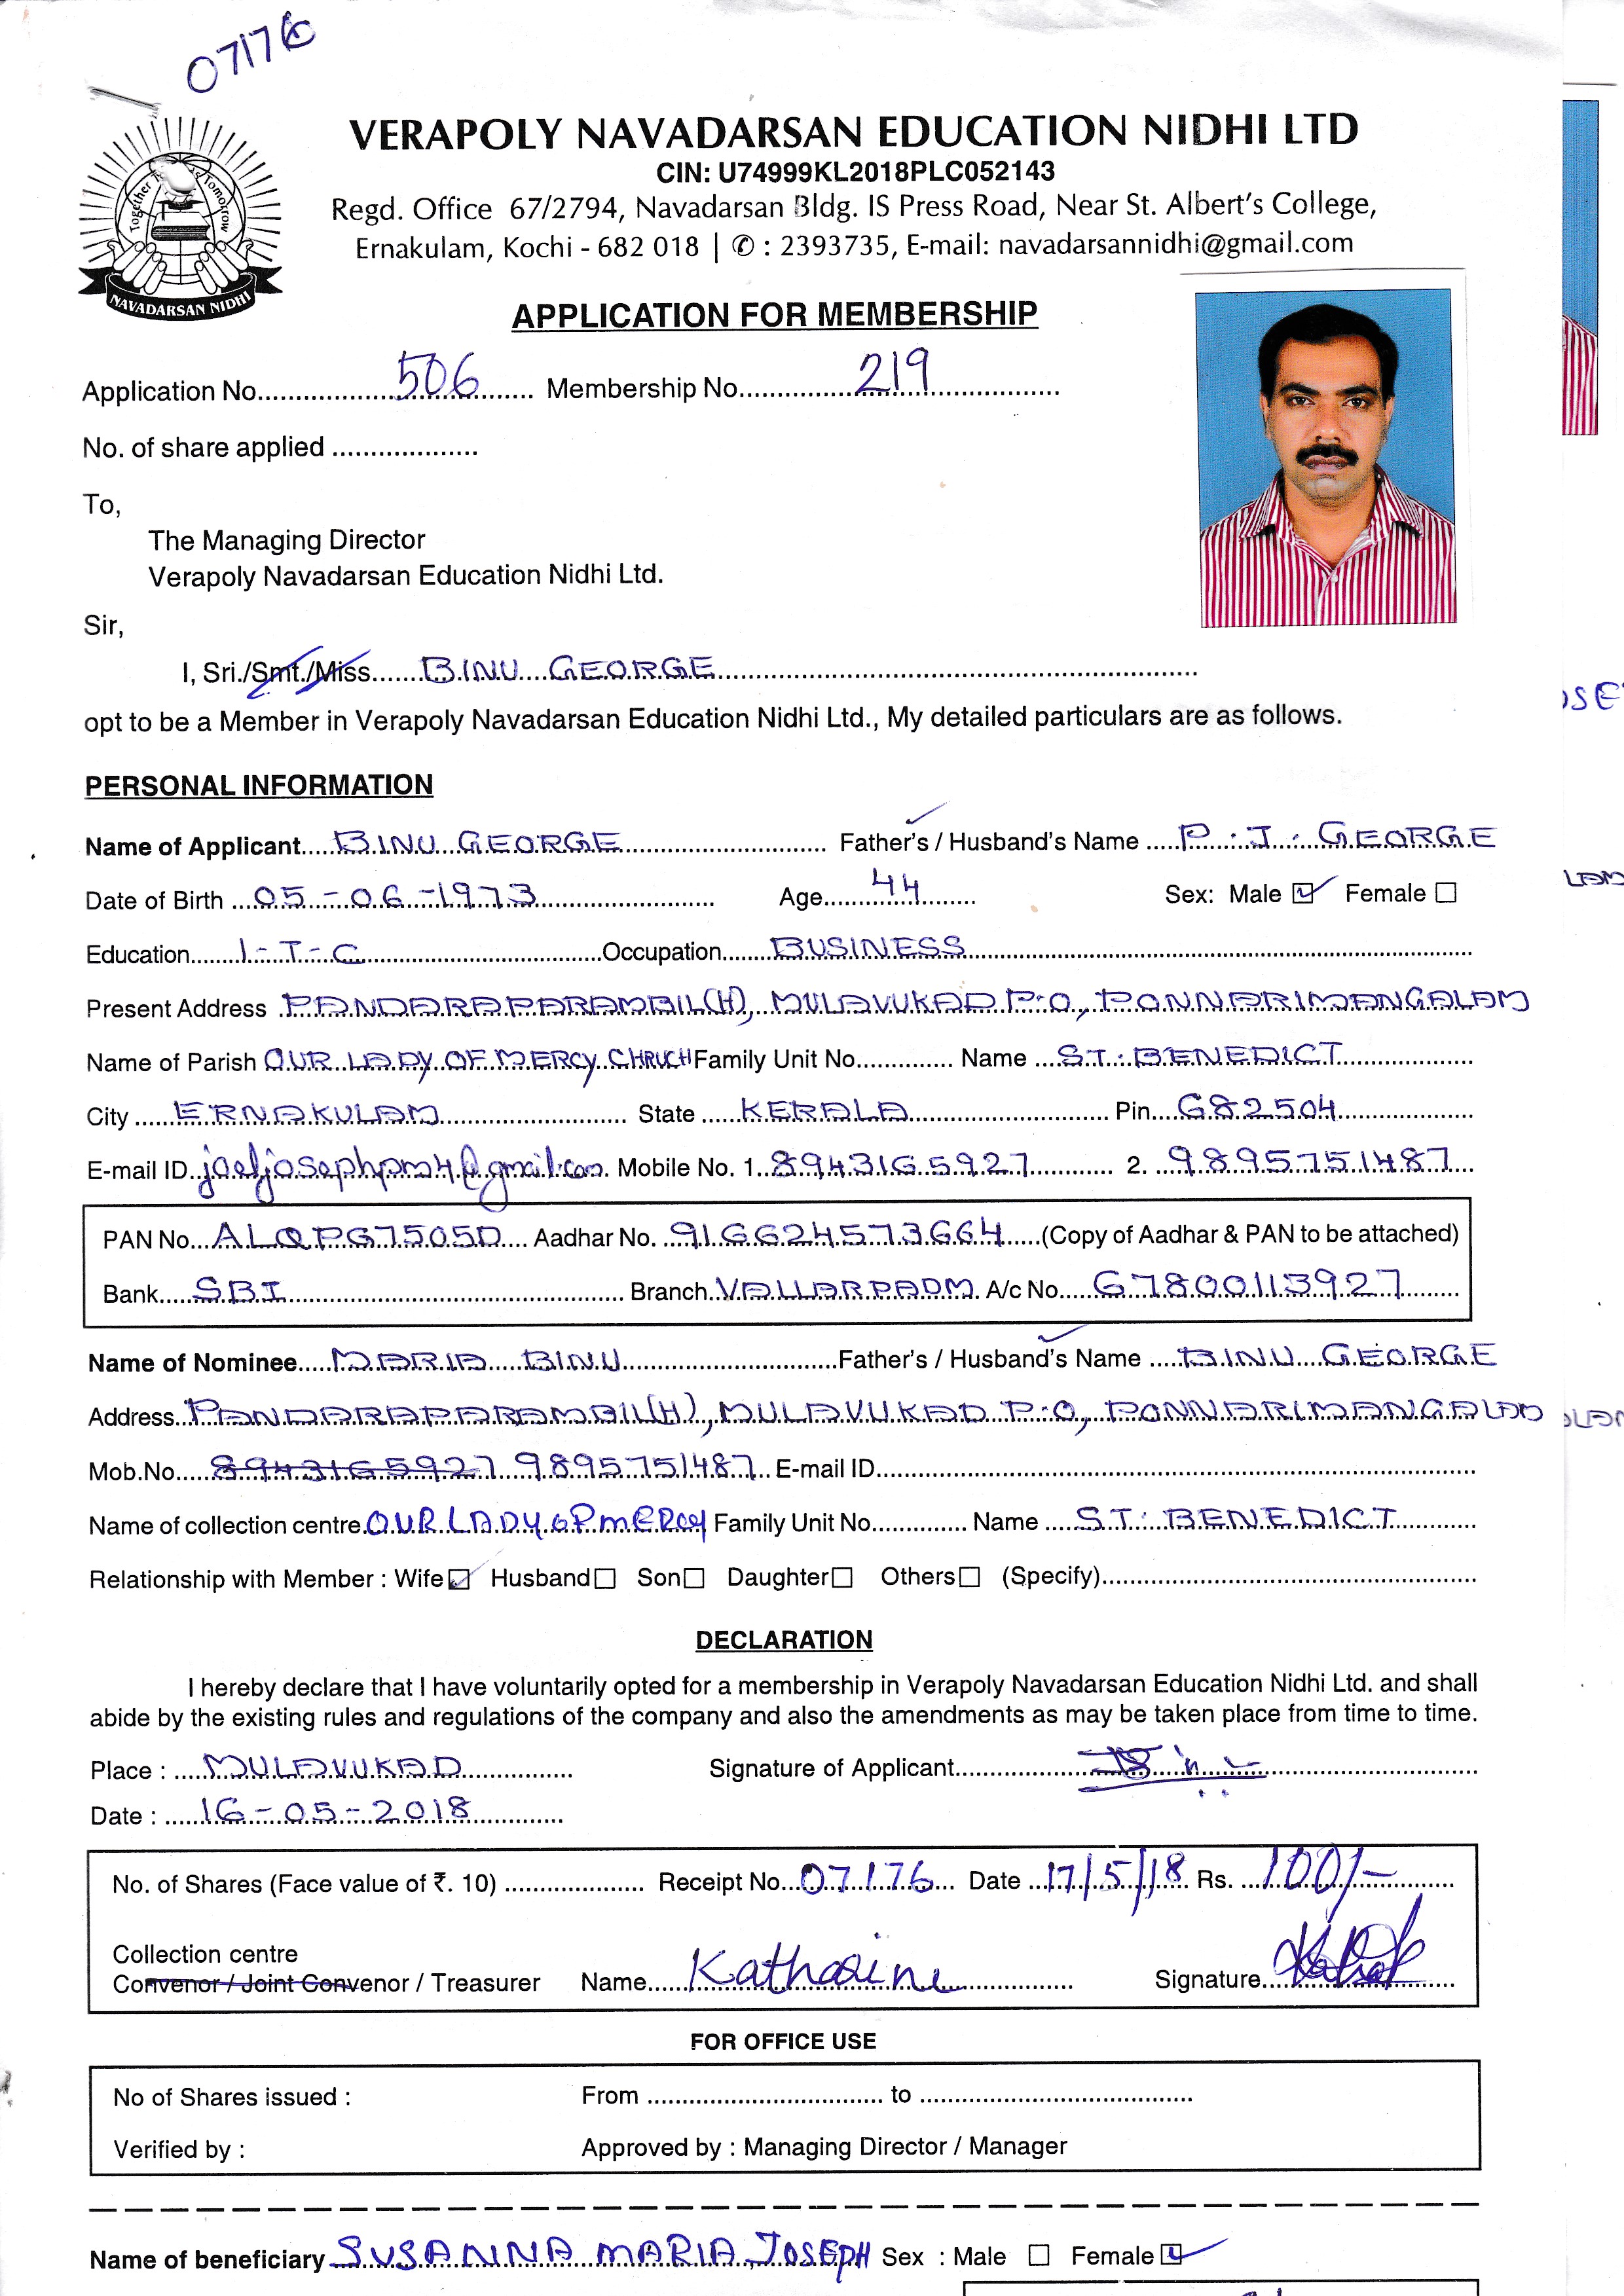 07176
VERAPOLY NAVADARSAN EDUCATION NIDHI LTD
CIN: U74999KL2018PLC052143
Regd. Office 67/2794, Navadarsan Bldg. IS Press Road, Near St. Albert's College,
Ernakulam, Kochi - 682 018 | ✆ : 2393735, E-mail: navadarsannidhi@gmail.com
Together Tomorrow
NAVADARSAN NIDHI
APPLICATION FOR MEMBERSHIP
Application No. 506 Membership No. 219
No. of share applied
To,
The Managing Director
Verapoly Navadarsan Education Nidhi Ltd.
Sir,
I, Sri./Smt./Miss BINU GEORGE
opt to be a Member in Verapoly Navadarsan Education Nidhi Ltd., My detailed particulars are as follows.
PERSONAL INFORMATION
Name of Applicant BINU GEORGE Father's / Husband's Name P. J. GEORGE
Date of Birth 05-06-1973 Age 44 Sex: Male ☑ Female ☐
Education I-T-C Occupation BUSINESS
Present Address PANDARAPARAMBIL(H), MULAVUKAD P.O, PONNARIMANGALAM
Name of Parish OUR LADY OF MERCY CHRUCH Family Unit No. Name ST. BENEDICT
City ERNAKULAM State KERALA Pin 682504
E-mail ID joeljosephpm4@gmail.com Mobile No. 1. 8943165927 2. 9895751487
PAN No. ALQPG7505D Aadhar No. 916624573664 (Copy of Aadhar & PAN to be attached)
Bank SBI Branch VALLARPADM A/c No. 67800113927
Name of Nominee MARIA BINU Father's / Husband's Name BINU GEORGE
Address PANDARAPARAMBIL(H), MULAVUKAD P.O, PONNARIMANGALAM
Mob.No. 8943165927 9895751487 E-mail ID
Name of collection centre OUR LADY OF MERCY Family Unit No. Name ST. BENEDICT
Relationship with Member : Wife ☑ Husband ☐ Son ☐ Daughter ☐ Others ☐ (Specify)
DECLARATION
I hereby declare that I have voluntarily opted for a membership in Verapoly Navadarsan Education Nidhi Ltd. and shall
abide by the existing rules and regulations of the company and also the amendments as may be taken place from time to time.
Place : MULAVUKAD Signature of Applicant
Date : 16-05-2018
No. of Shares (Face value of ₹. 10) Receipt No. 07176 Date 17/5/18 Rs. 100/-
Collection centre
Convenor / Joint Convenor / Treasurer Name Katharine Signature
FOR OFFICE USE
No of Shares issued : From to
Verified by : Approved by : Managing Director / Manager
Name of beneficiary SUSANNA MARIA JOSEPH Sex : Male ☐ Female ☑